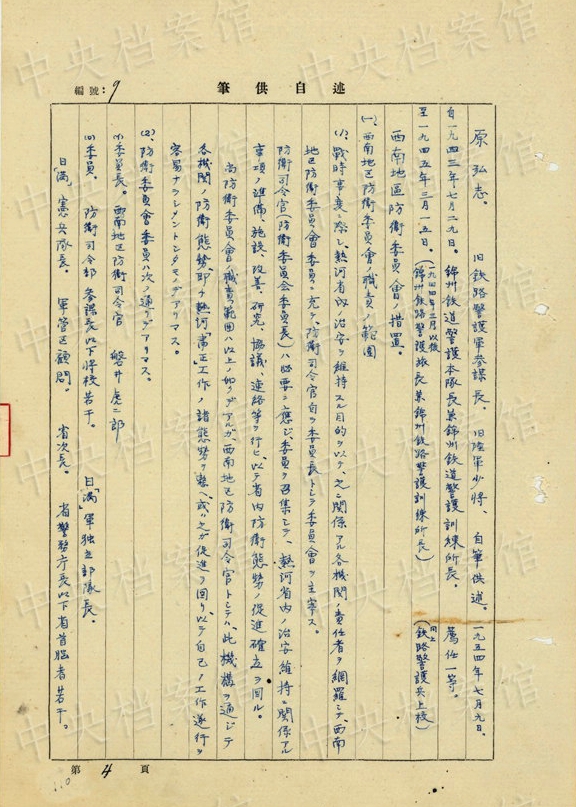 編號：9
述自供筆
原 弘志。 旧鉄路警護軍参謀長。 旧陸軍少将。 自筆供述。 一九五四年七月九日。
自一九四三年七月二九日。 錦州鉄道警護本隊長兼錦州鉄道警護訓練所長。 薦任一等。
至一九四五年三月一五日。 (一九四四年三月以後 錦州鉄路警護旅長兼錦州鉄路警護訓練所長) (同上 鉄路警護兵上校)
西南地區防衛委員會ノ措置。
(一)、西南地区防衛委員會ノ職責ノ範囲
(1)、戦時事変ニ際シ、熱河省内ノ治安ヲ維持スル目的ヲ以テ、之ニ関係アル各機関ノ責任者ヲ網羅シテ、西南
地区防衛委員會委員ニ充テ、防衛司令官自ラ委員長トシテ委員會ヲ主宰ス。
防衛司令官(防衛委員会委員長)ハ必要ニ應ジ、委員ヲ召集シテ、熱河省内ノ治安維持ニ関係アル
事項ノ準備、施設、改善、研究、協議、連絡等ヲ行ヒ、以テ省内防衛態勢ノ促進確立ヲ図ル。
尚防衛委員會ノ職責範囲ハ以上ノ如クデアルガ、西南地区防衛司令官トシテハ、此機構ヲ通ジテ
各機関ノ防衛態勢、即チ熱河「粛正」工作ノ諸態勢ヲ整ヘ、或ハ之ガ促進ヲ図リ、以テ自己ノ工作遂行ヲ
容易ナラシメントシタモノデアリマス。
(2)、防衛委員會委員ハ次ノ通リデアリマス。
(イ)委員長。 西南地区防衛司令官 磐井虎二郎
(ロ)委員。 防衛司令部参謀長以下将校若干。 日「満」軍独立部隊長。
日「満」憲兵隊長。 軍管区顧問。 省次長。 省警務庁長以下省首脳者若干。
第 4 頁
110
中央档案馆